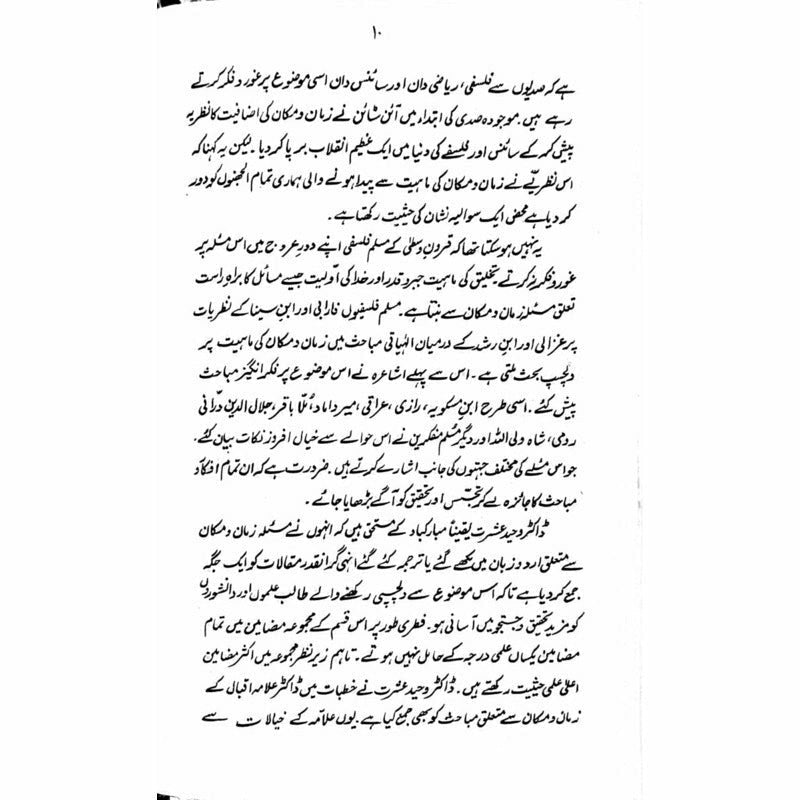 ۱۰
ہے کہ صدیوں سے فلسفی، ریاضی دان اور سائنس دان اسی موضوع پر غور و فکر کرتے
رہے ہیں۔ موجودہ صدی کی ابتداء میں آئن سٹائن نے زمان و مکان کی اضافیت کا نظریہ
پیش کر کے سائنس اور فلسفے کی دنیا میں ایک عظیم انقلاب برپا کر دیا۔ لیکن یہ کہنا کہ
اس نظریّے نے زمان و مکان کی ماہیت سے پیدا ہونے والی ہماری تمام الجھنوں کو دور
کر دیا ہے محض ایک سوالیہ نشان کی حیثیت رکھتا ہے۔
یہ نہیں ہو سکتا تھا کہ قرونِ وسطیٰ کے مسلم فلسفی اپنے دورِ عروج میں اس مسئلہ پر
غور و فکر نہ کرتے۔ تخلیق کی ماہیت جبر و قدر اور خدا کی اوّلیت جیسے مسائل کا براہِ راست
تعلق مسئلہ زمان و مکان سے بنتا ہے۔ مسلم فلسفیوں فارابی اور ابنِ سینا کے نظریات
پر غزالی اور ابنِ رشد کے درمیان الٰہیاتی مباحث میں زمان و مکان کی ماہیت پر
دلچسپ بحث ملتی ہے۔ اس سے پہلے اشاعرہ نے اس موضوع پر فکر انگیز مباحث
پیش کئے۔ اسی طرح ابنِ مسکویہ، رازی، عراقی، میر داماد، مُلّا باقر، جلال الدین درّانی
رومی، شاہ ولی اللہ اور دیگر مُسلم مفکرین نے اس حوالے سے خیال افروز نکات بیان کئے۔
جو اس مسئلے کی مختلف جہتوں کی جانب اشارے کرتے ہیں۔ ضرورت ہے کہ ان تمام افکار و
مباحث کا جائزہ لے کر تجسّس اور تحقیق کو آگے بڑھایا جائے۔
ڈاکٹر وحید عشرت یقیناً مبارکباد کے مستحق ہیں کہ انہوں نے مسئلہ زمان و مکان
سے متعلق اردو زبان میں لکھے گئے یا ترجمہ کئے گئے انہی گرانقدر مقالات کو ایک جگہ
جمع کر دیا ہے تاکہ اس موضوع سے دلچسپی رکھنے والے طالب علموں اور دانشوروں
کو مزید تحقیق و جستجو میں آسانی ہو۔ فطری طور پر اس قسم کے مجموعہ مضامین میں تمام
مضامین یکساں علمی درجہ کے حامل نہیں ہوتے۔ تاہم زیرِ نظر مجموعہ میں اکثر مضامین
اعلیٰ علمی حیثیت رکھتے ہیں۔ ڈاکٹر وحید عشرت نے خطبات میں ڈاکٹر علامہ اقبال کے
زمان و مکان سے متعلق مباحث کو بھی جمع کیا ہے۔ یوں علاّمہ کے خیالات سے